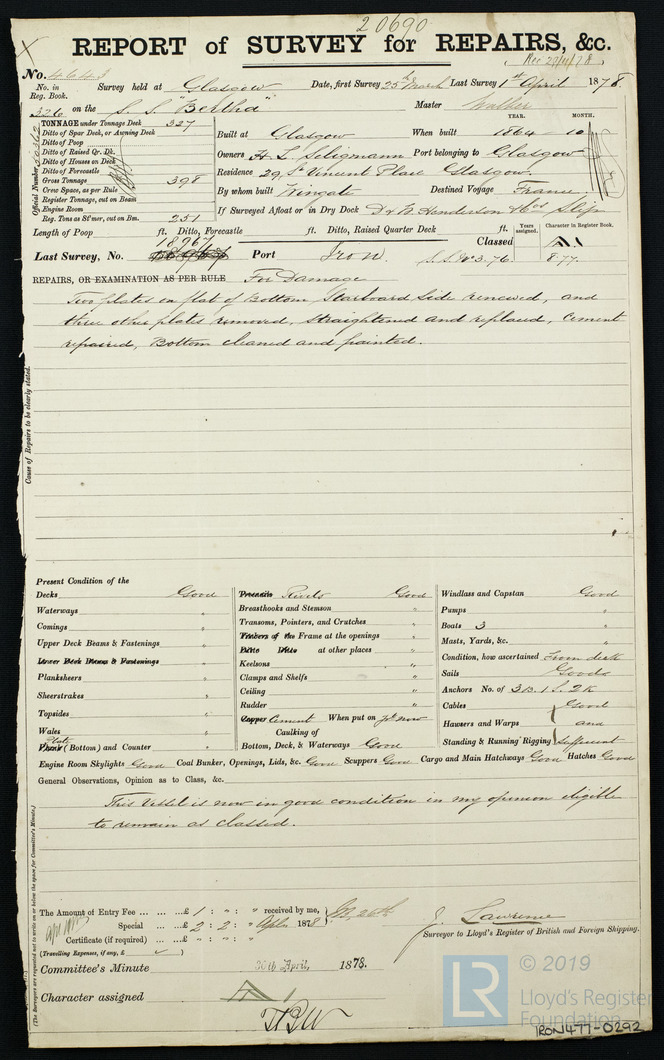 20690
REPORT of SURVEY for REPAIRS, &c.
No. 4643
No. in Reg. Book. Survey held at Glasgow Date, first Survey 25th March Last Survey 1st April 1878
326 on the S.S. "Bertha" Master
TONNAGE under Tonnage Deck 327
Ditto of Spar Deck, or Awning Deck
Ditto of Poop
Ditto of Raised Qr. Dk.
Ditto of Houses on Deck
Gross Tonnage 398
Crew Space, as per Rule
Register Tonnage, cut on Beam
Engine Room
Reg. Tons as St'mer, cut on Bm. 251
Official Number
YEAR. MONTH.
Built at Glasgow When built 1864 - 10
Owners H L Seligmann Port belonging to Glasgow
Residence 29, St Vincent Place Glasgow.
By whom built Wingate Destined Voyage France.
If Surveyed Afloat or in Dry Dock D & W Henderson & Co's Slip
Length of Poop ft. Ditto, Forecastle ft. Ditto, Raised Quarter Deck ft.
Years assigned. Character in Register Book.
Classed A 1
18967
Last Survey, No. Port Iron. S.S. No 3. 76 8.77.
REPAIRS, OR EXAMINATION AS PER RULE For Damage
Two plates on flat of Bottom Starboard side renewed, and
three other plates removed, straightened and replaced, Cement
repaired, Bottom cleaned and painted.
Cause of Repairs to be clearly stated.
Present Condition of the
Decks Good
Waterways "
Comings "
Upper Deck Beams & Fastenings "
Lower Deck Beams & Fastenings
Planksheers "
Sheerstrakes "
Topsides "
Wales "
Plate (Bottom) and Counter "
Treenails Rivets Good
Breasthooks and Stemson "
Transoms, Pointers, and Crutches "
Timbers of the Frame at the openings "
Ditto Ditto at other places "
Keelsons "
Clamps and Shelfs "
Ceiling "
Rudder "
Copper Cement When put on now
Caulking of
Bottom, Deck, & Waterways Good
Windlass and Capstan Good
Pumps "
Boats 3 "
Masts, Yards, &c. "
Condition, how ascertained From deck
Sails Good
Anchors No. of 3 B. 1 S. 2 K
Cables Good
Hawsers and Warps and
Standing & Running Rigging Sufficient
Engine Room Skylights Good Coal Bunker, Openings, Lids, &c. Good Scuppers Good Cargo and Main Hatchways Good Hatches Good
General Observations, Opinion as to Class, &c.
This Vessel is now in good condition in my openion eligible
to remain as classed.
(The Surveyors are requested not to write on or below the space for Committee's Minute.)
The Amount of Entry Fee ... ... ...£ 1 : " : " received by me,
Special ... ...£ 2 : 2 : " Apln 1878
Certificate (if required) ...£ " : " : "
(Travelling Expenses, if any, £ )
J. Lawrence
Surveyor to Lloyd's Register of British and Foreign Shipping.
Committee's Minute 30th April, 1878.
Character assigned A 1
LR © 2019
Lloyd's Register
Foundation
IRON477-0292